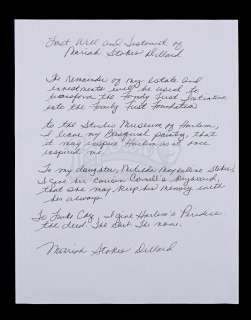 Last Will and Testament of
Mariah Stokes Dillard
The remainder of my estate and
investments will be used to
transform the Family First Initiative
into the Family First Foundation
To the Studio Museum of Harlem,
I leave my Basquiat painting, that
it may inspire Harlem as it once
inspired me.
To my daughter, Matilda Maybelline Stokes,
I give her cousin Cornell's keyboard,
that she may keep his memory with
her always.
To Luke Cage, I give Harlem's Paradise.
The deed. The Bar. The name.
Mariah Stokes Dillard